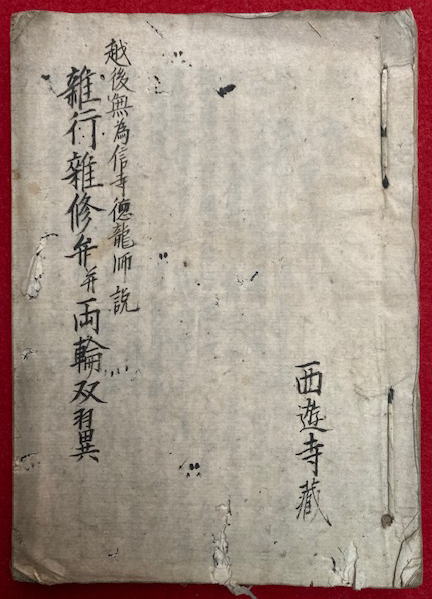 西遊寺藏
越後無為信寺德龍師説
雜行雜修弁并両輪双翼